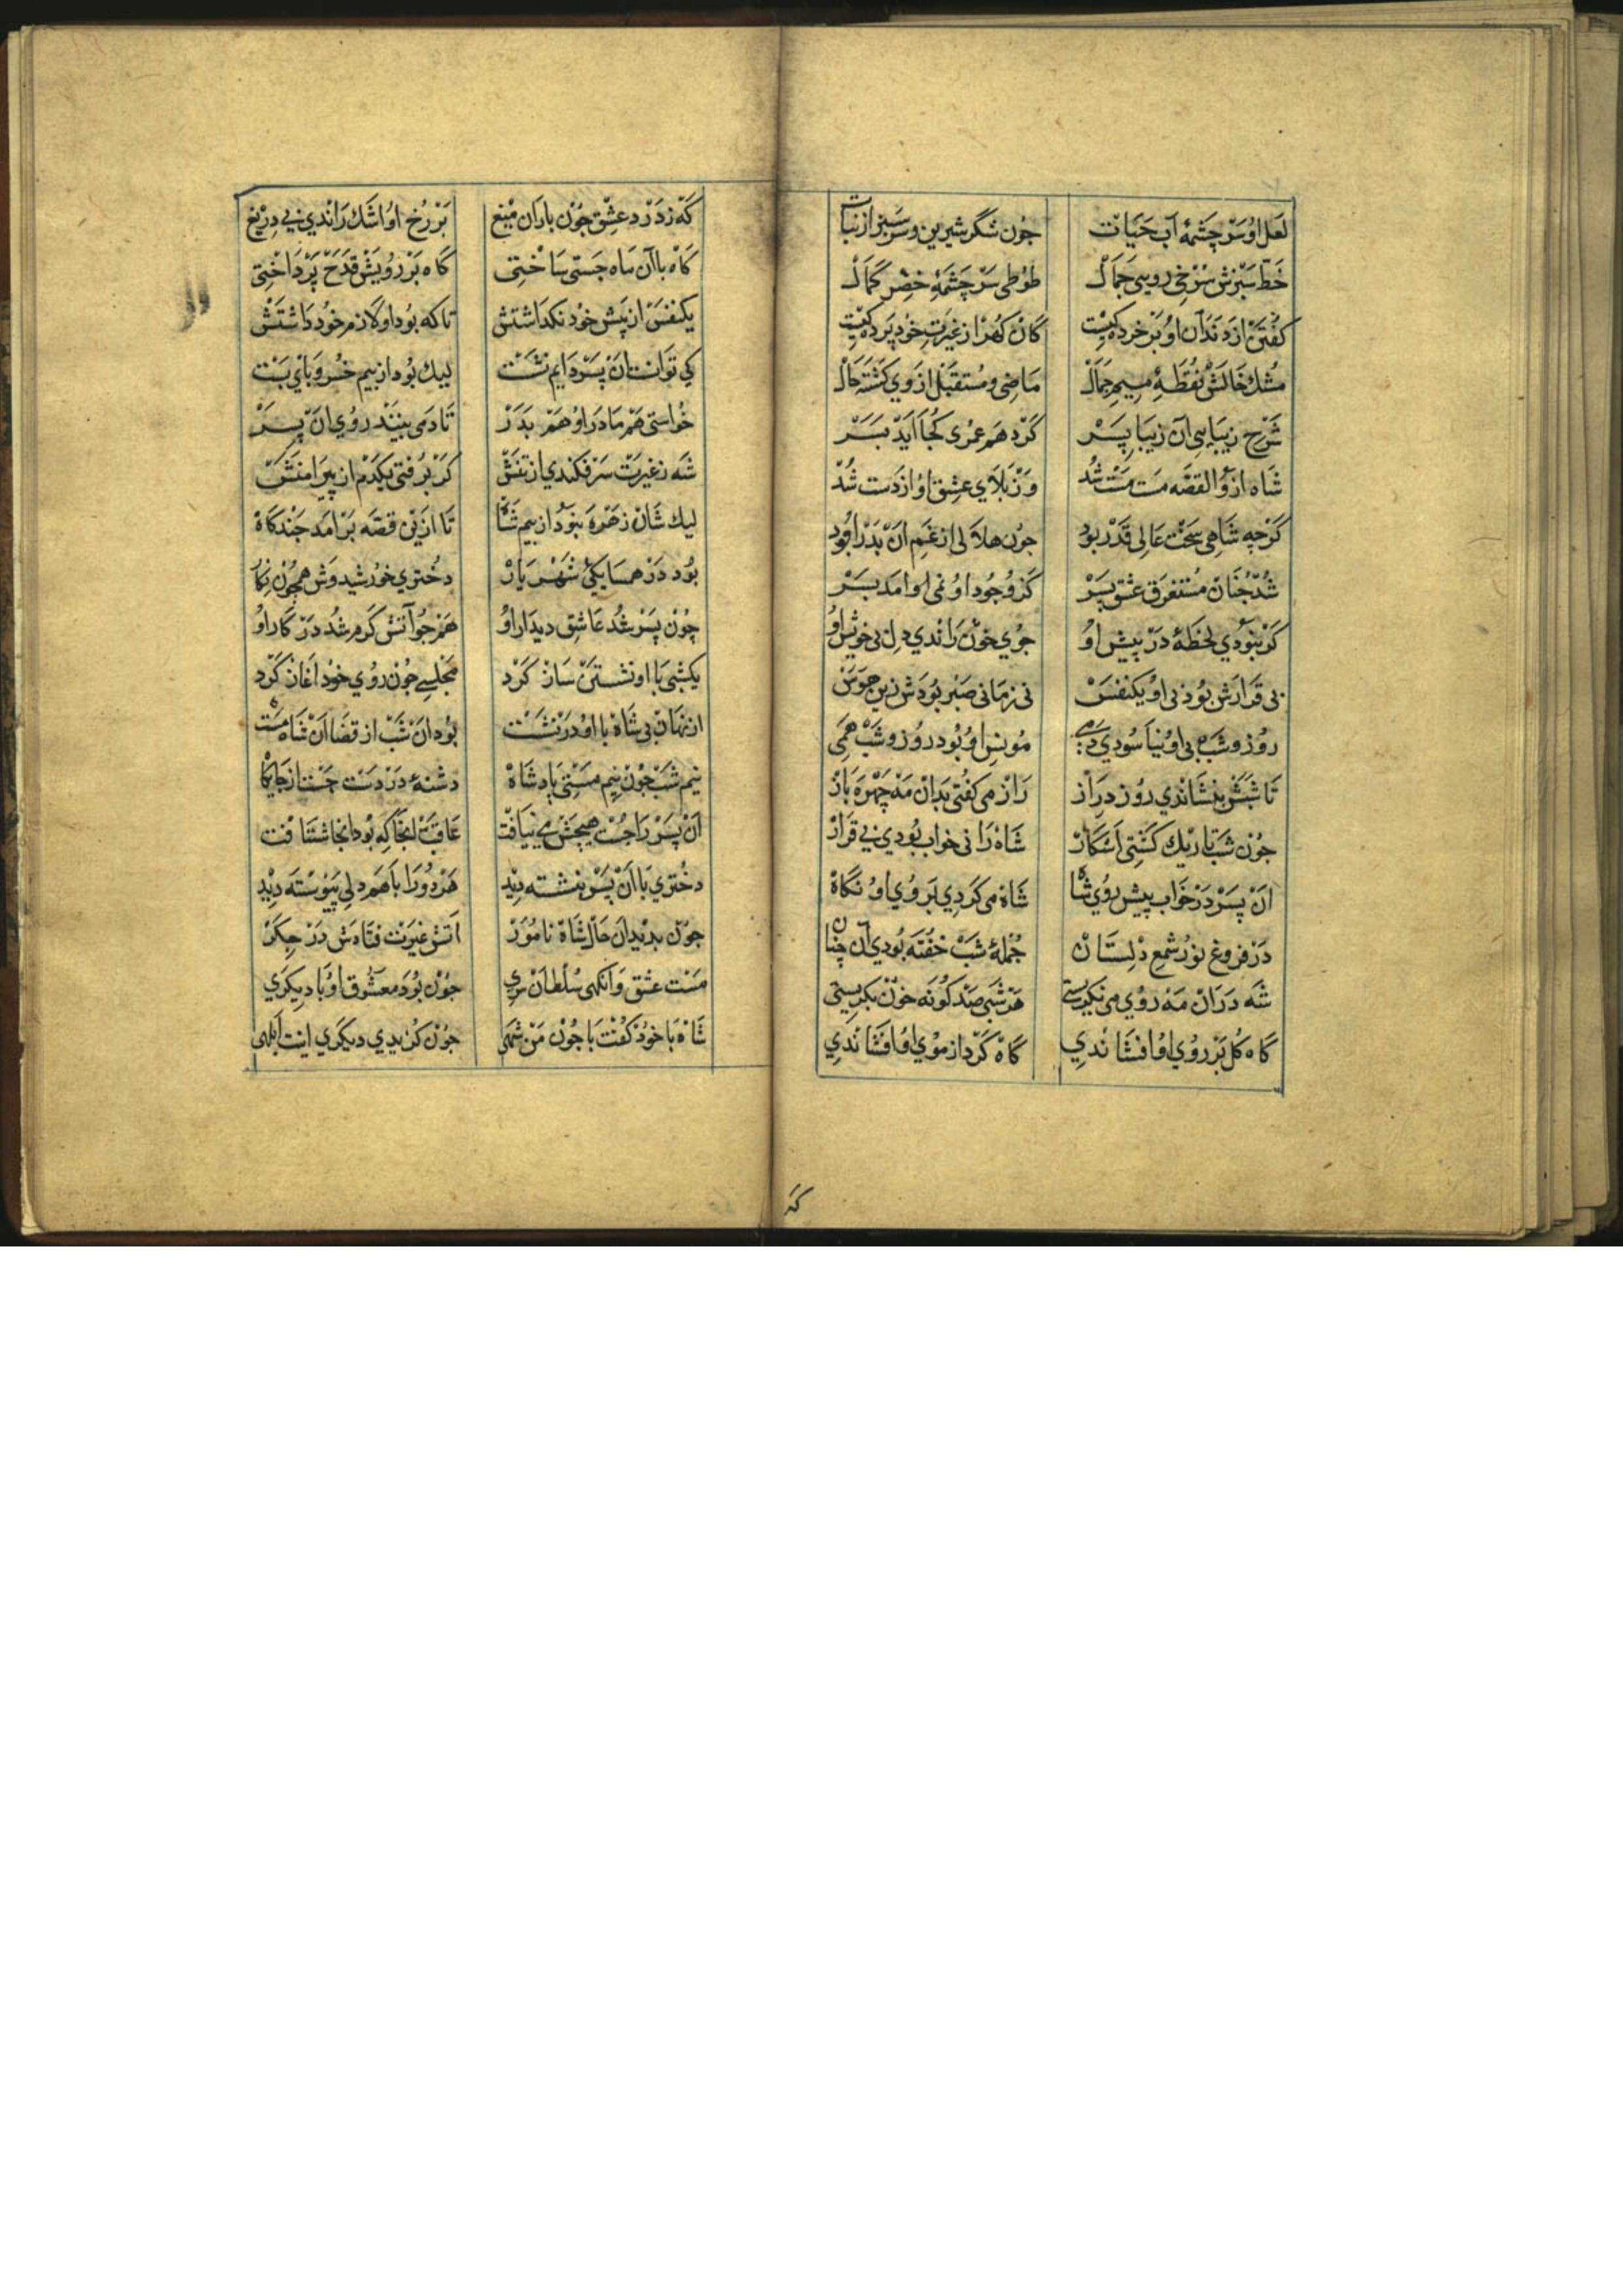 لَعل اوُ سَرْ چشمهٔ آب حَیَات جُون شکر شیرین و سَر سَبز از نبات
خَطّ سَبْزش سُرْخ رویی جَمَال طوُطی سَرْ چَشمَهٔ خضِر کمَال
کفتن از دَندَان اوُ بَرْ خرده کیست کان کهُر از غیرت خود پَرده کیست
مُشك خَالش نُقطَهٔ میمِ جَمَال مَاضی و مُستقبَل از وَی کَشته حَال
شَرْح زیبَایی آن زیبَا پسَرْ کَرْدهَم عمری کُجا اَیَد بَسَرْ
شاه ازو القصّه مَست مَست شُد وَز بَلَاي عِشق اوُ از دَست شُد
کَرْچه شاهی سَخت عَالی قَدْر بوُد جوُن هلَالی از غم اَن بَدْر بوُد
شُد چُنَان مُستغرَق عشق پسَرْ کَز وجُود اوُ نمی اوا مَد بسَرْ
کَر نبوُدي لحَظهٔ دَرْ پیش اوُ جوُي خوُن رَاندي دل بی خویش اوُ
بی قرَارش بوُد نی اوُ یکنفسْ نی زمَانی صَبر بوُدش زین هوَسْ
روُز و شَب بی اوُ نیَا سوُدي دَمی مُونسِ اوُ بوُد روُز و شَب همی
تَا شبَش بنشَاندي روُز درَاز رَاز می کفُتی بدَان مَه چهره بَاز
جُون شب تَاریك کشتی اَشکار شاه رَا نی خواب بوُدي نی قرَار
اَن پسَرْ دَر خَواب پیش روُي شاه شَاه می کَردي بَروُي اوُ نگاه
دَر فروغ نوُر شمع دلستَان جُملهٔ شَب خفُته بوُدي اَن چنان
شَه دَرَان مَه روُي می نکرستی هَر شَبی صَد کوُنه خوُن بکرستی
کاه کل بَر روُي اوُ افشَاندي کاه کَرد از موُي اوُ افشَاندي
کَه زدَرْد عِشق جوُن بارَان میغ بَر رُخ اوُ اشَك رَاندي بی دریغ
کاه با آن ماه جَستی سَاختی کاه بَر رویش قَدَح پَرْدَاختی
یکنفس از پیش خوُد نکذاشتش تا که بوُد اوُ لَازم خوُد دَاشتش
کی توَانست اَن پسَرْ دَایم نشست لیك بوُد از بیم خسُرو باي بَست
خُواستی هَم مَادَر اوُ هَم بَدَرْ تَا دَمی بینند روُي اَن پسَرْ
کَرْ برُفتی یکدَم از پیرَامنش شَه زغیرت سَر فکندي از تنش
لیك شان زَهره نبوُد از بیم شاه تَا ازین قصّه بَر امَد جند کاه
بوُد دَر همسَایکیّ شَهریَارْ دخُتري خوُرشید وَش همچوُن نکار
چوُن پسَرْ شُد عَاشق دیدَار اوُ همَ جو آتش کَرم شُد دَر کار اوُ
یکشبی با او نشستن سَاز کَرْد مجلسی جوُن روُي خوُد اَغاز کَرد
از نهَان بی شاه با اوُ دَر نشست بوُد اَن شَب از قضَا اَن شَاه مَست
نیم شَب جوُن نیم مَستی پادشَاه دشنهٔ دَر دَست جَست از جایکاه
اَن پسَرْ رَا جُست هیچش می نیَافت عَاقبَت انجَا که بوُد انجا شتَافت
دخُتري بَا اَن پسَرْ بنشسته دید هَر دوُ رَا بَا هَم دلی پیوسته دید
جوُن بدید اَن حَال شَاه نامُورْ اَتش غیرت فتَادش دَر جکر
مَست عشق وَانکهی سُلطان سري جوُن بوُد معشوُق اوُ بَا دیکري
شَاه بَا خوُد کفُت با جوُن مَن شهی جوُن کزیدي دیکري اینت ابلهی
که